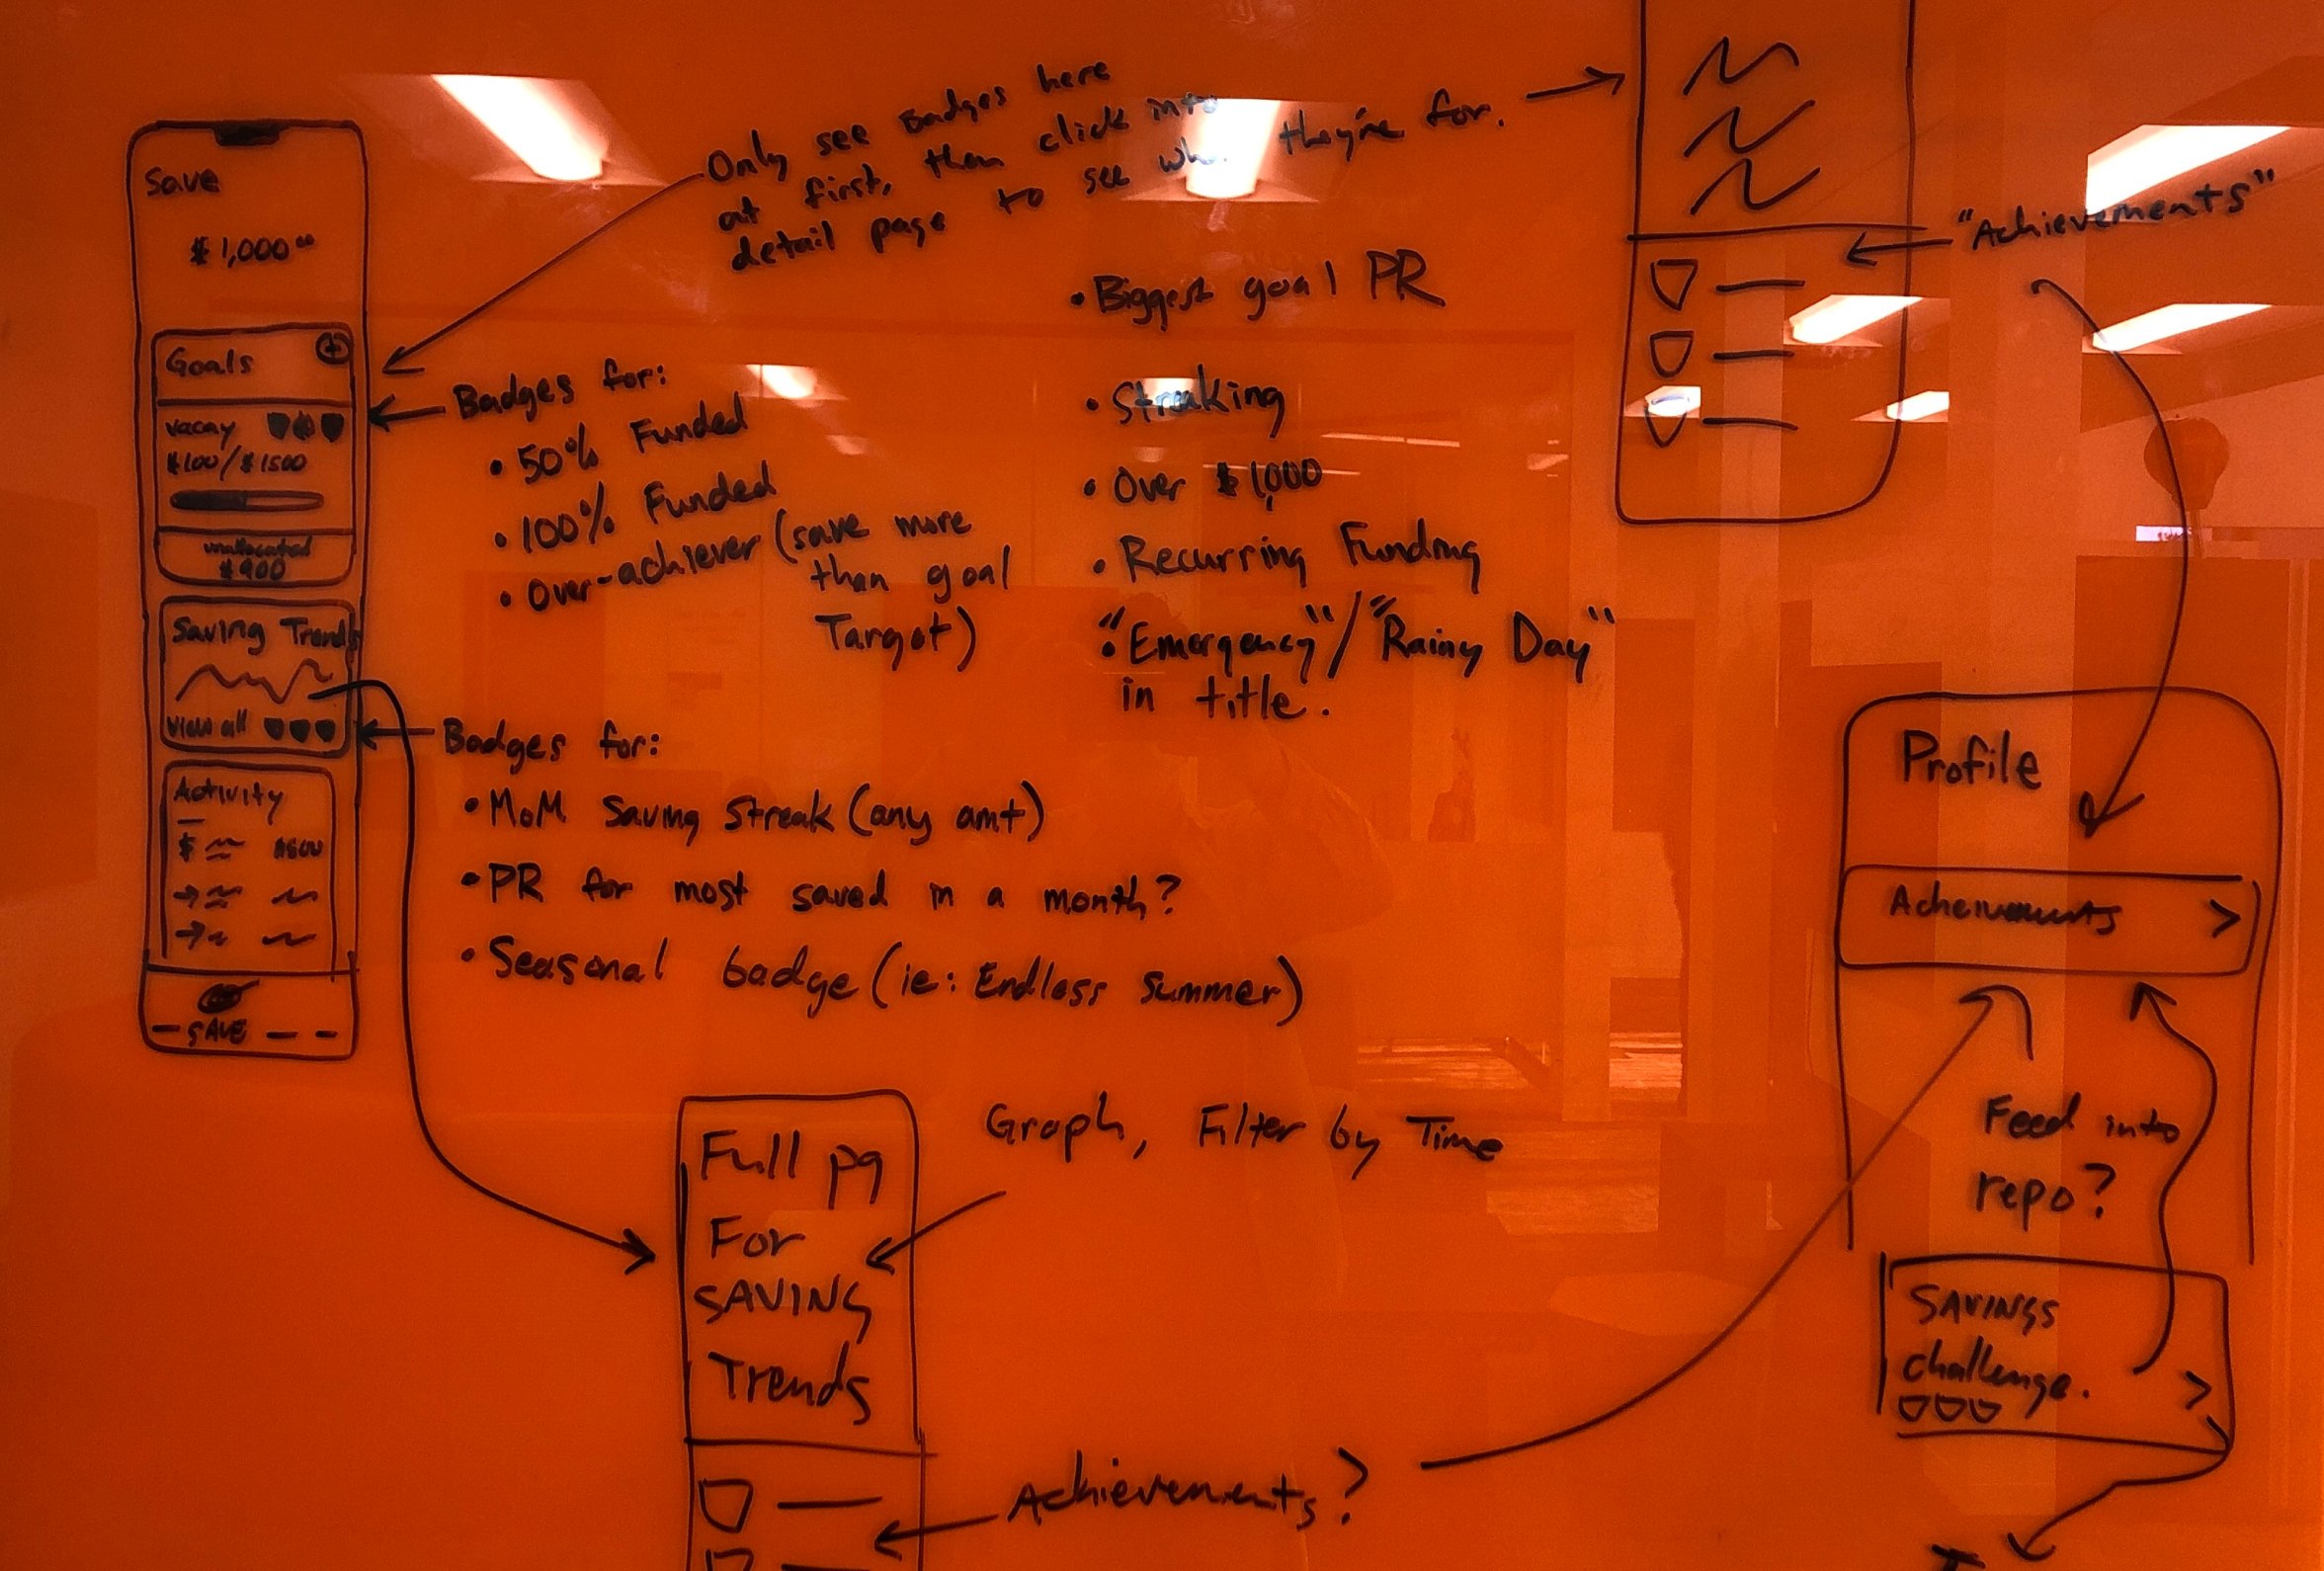 Save
$1,000.00
Goals
vacay
$100/$1500
unallocated
$900
Saving Trends
View all
Activity
$ $600
SAVE
Only see Badges here
at first, then click into
detail page to see what they're for.
Badges for:
• 50% Funded
• 100% Funded
• Over-achiever (save more
than goal
Target)
• Biggest goal PR
• Streaking
• Over $1,000
• Recurring Funding
• "Emergency"/"Rainy Day"
in title.
Badges for:
• MoM Saving Streak (any amt)
• PR for most saved in a month?
• Seasonal badge (ie: Endless Summer)
Full pg
For
SAVING
Trends
Graph, Filter by Time
Achievements?
"Achievements"
Profile
Acheivements >
Feed into
repo?
SAVINGS
challenge. >